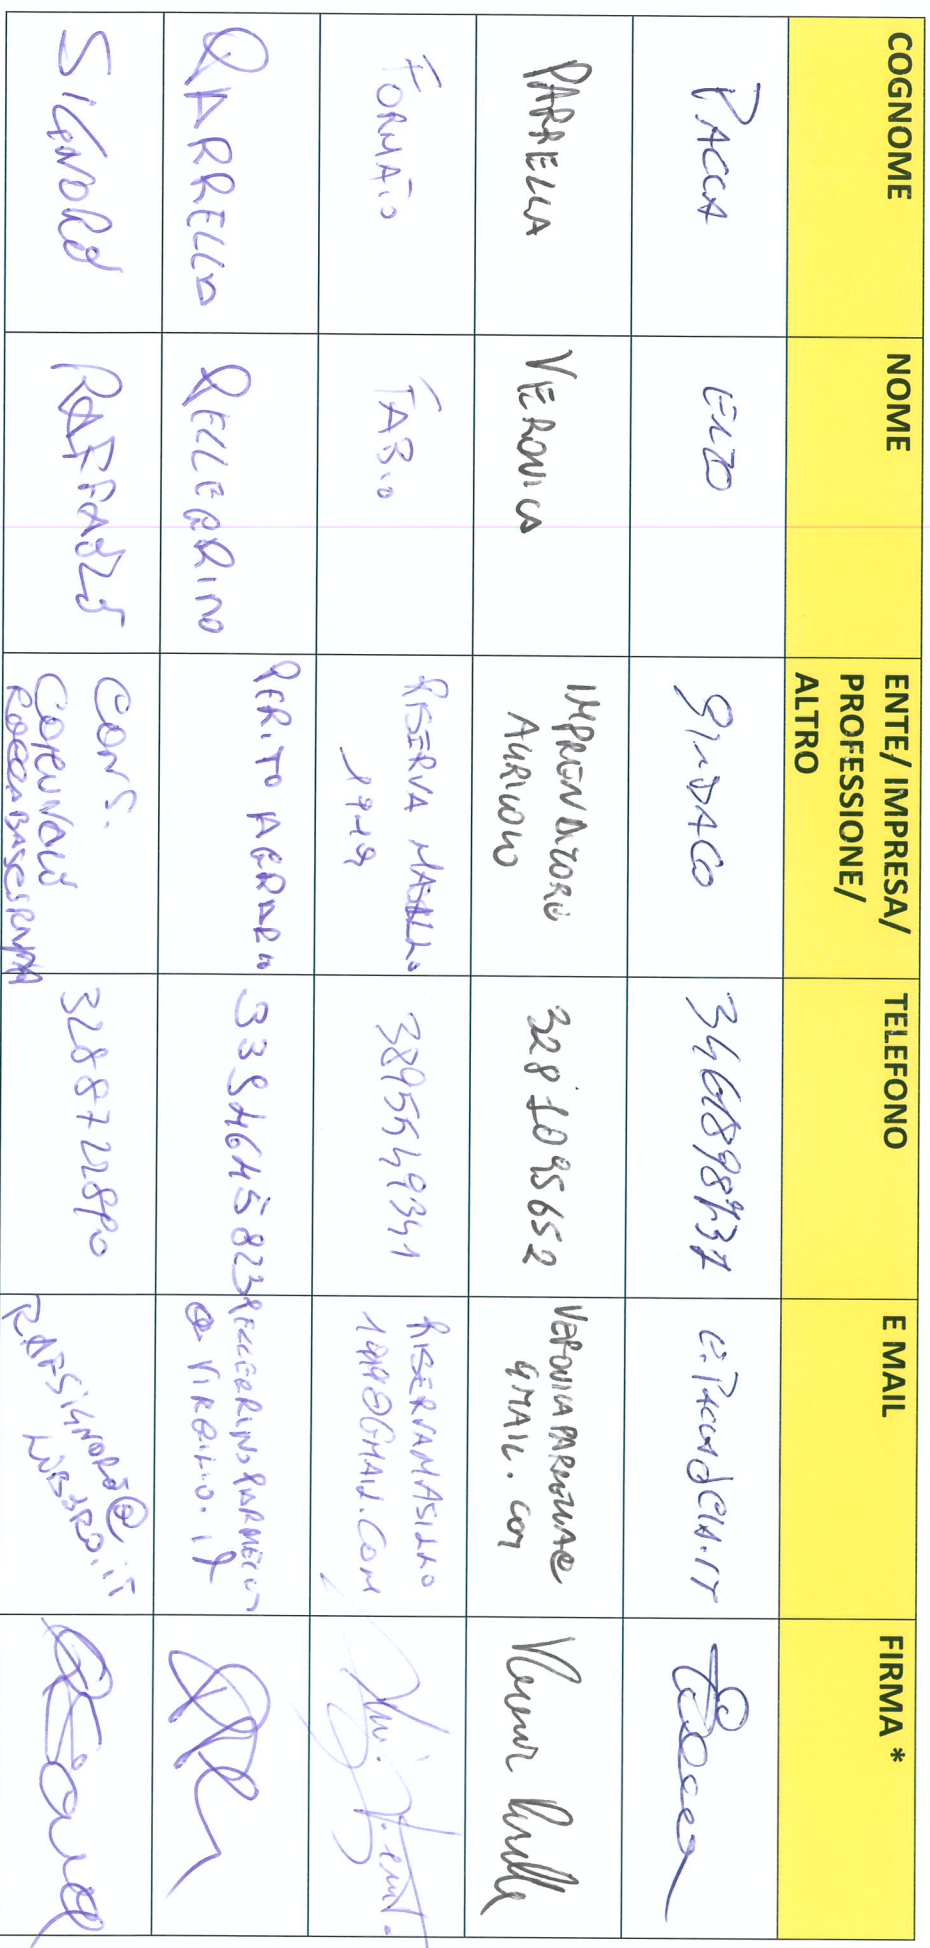 COGNOME NOME ENTE/ IMPRESA/ PROFESSIONE/ ALTRO TELEFONO E MAIL FIRMA *
PACCA ENZO SINDACO
PARRELLA VERONICA IMPRENDITORE AGRICOLO 3281095652
GMAIL.COM
FORMATO FABIO RISERVA MASILLO 1919 3895549341 RISERVAMASILLO
1919@GMAIL.COM
PARRELLA PELLEGRINO PERITO AGRARIO 3394645823
@VIRGILIO.IT
SIGNORE RAFFAELE CONS. COMUNALE ROCCABASCERANA
RAFSIGNORE@
LIBERO.IT